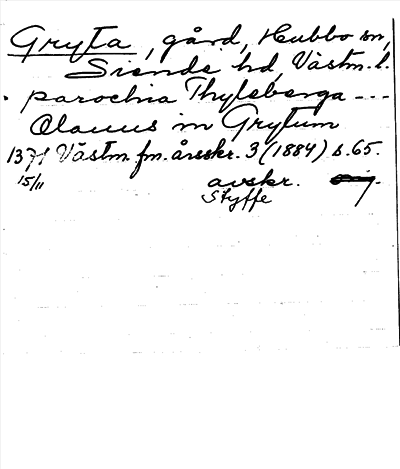 Gryta, gård, Hubbo sn,
Siende hd, Västm. l.
parochia Thyleberga ---
Olauus in Grytum
1371 Västm fm. årsskr. 3 (1884) s. 65.
15/11 avskr.
Styffe